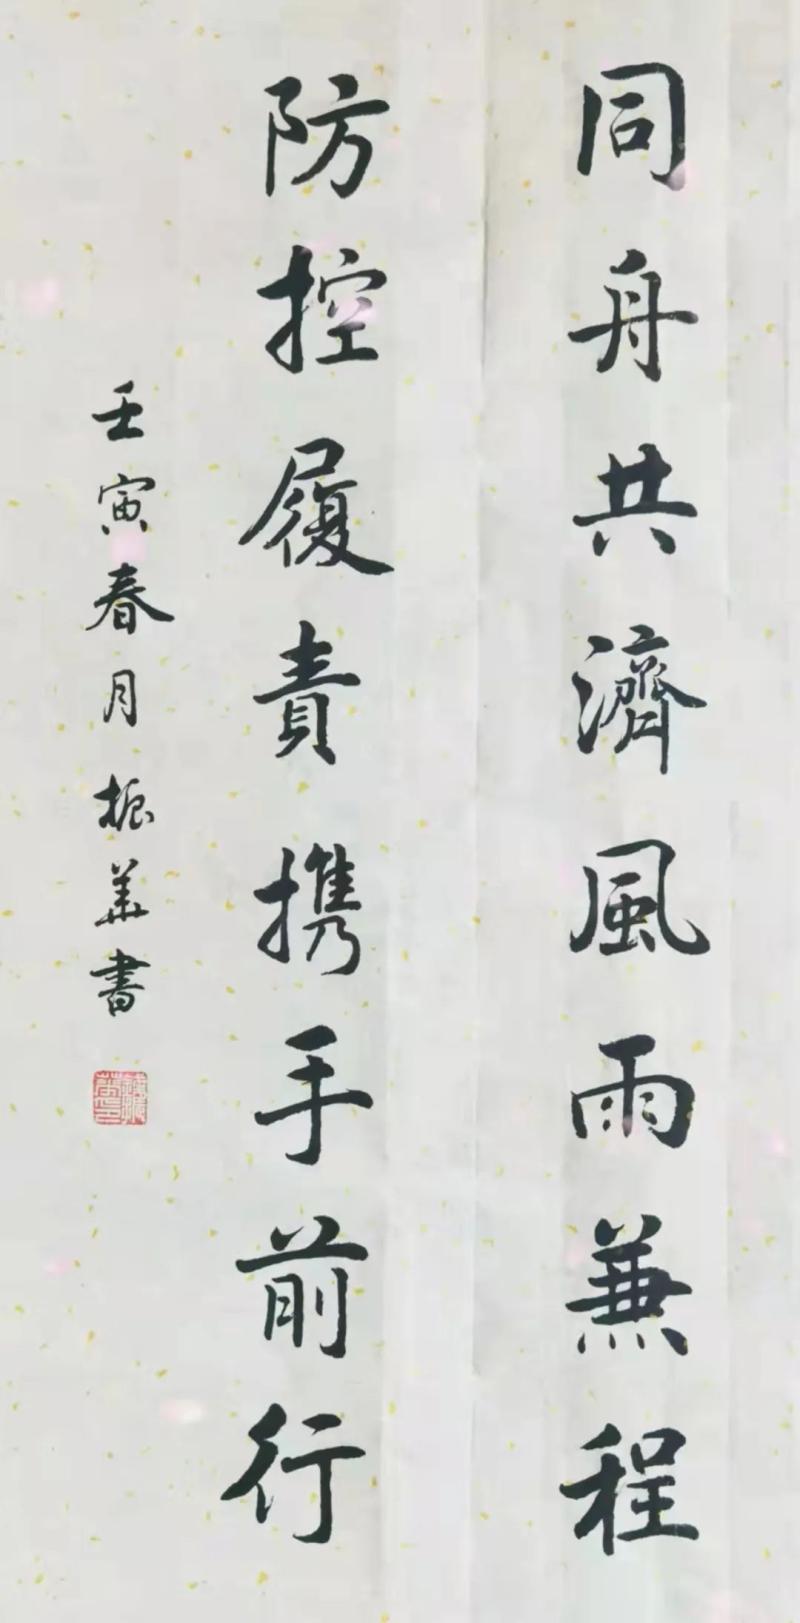 同舟共濟風雨兼程
防控履責携手前行
壬寅春月振華書